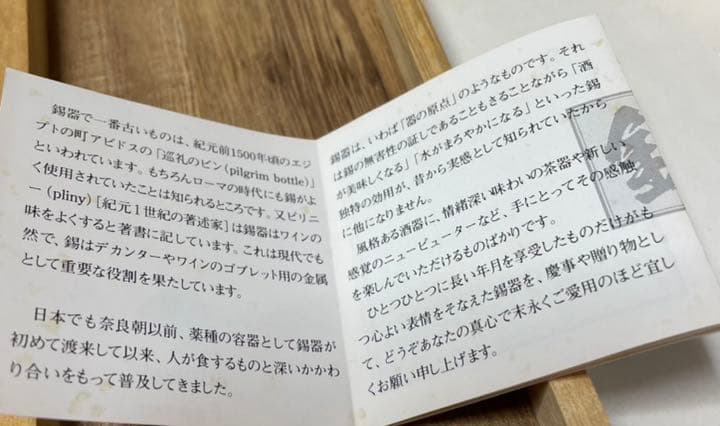 錫器で一番古いものは、紀元前1500年頃のエジ
プトの町アビドスの「巡礼のビン(pilgrim bottle)」
といわれています。もちろんローマの時代にも錫がよ
く使用されていたことは知られるところです。又ピリニ
ー (pliny) [紀元1世紀の著述家] は錫器はワインの
味をよくすると著書に記しています。これは現代でも
然で、錫はデカンターやワインのゴブレット用の金属
として重要な役割を果たしています。
日本でも奈良朝以前、薬種の容器として錫器が
初めて渡来して以来、人が食するものと深いかかわ
り合いをもって普及してきました。
錫器は、いわば「器の原点」のようなものです。それ
は錫の無害性の証しであることもさることながら「酒
が美味しくなる」「水がまろやかになる」といった錫
独特の効用が、昔から実感として知られていたから
に他になりません。
風格ある酒器に、情緒深い味わいの茶器や新しい
感覚のニューピューターなど、手にとってその感触
を楽しんでいただけるものばかりです。
ひとつひとつに長い年月を享受したものだけがも
つ心よい表情をそなえた錫器を、慶事や贈り物とし
て、どうぞあなたの真心で末永くご愛用のほど宜し
くお願い申し上げます。